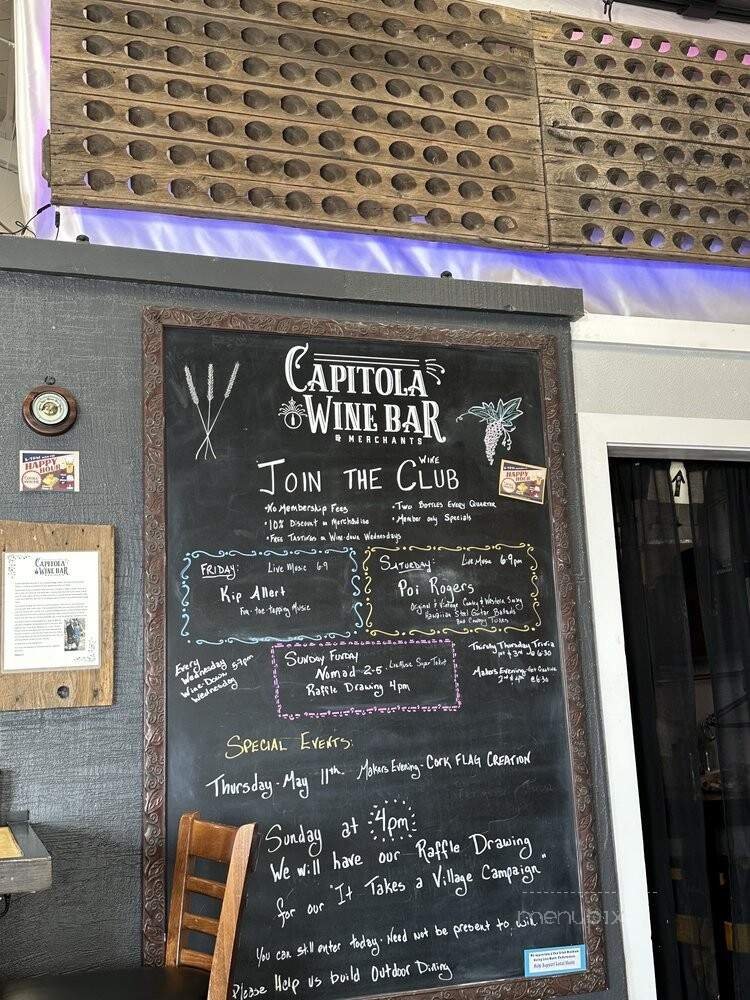 CAPITOLA
WINE BAR
& MERCHANTS
JOIN THE WINE CLUB
•No Membership Fees
•10% Discount on Merchandise
•FREE TASTINGS on Wine-down Wednesdays
•Two Bottles Every Quarter
•Member only Specials
HAPPY
HOUR
HAPPY
HOUR
CAPITOLA
WINE BAR
FRIDAY: Live Music 6-9
Kip Allert
Fun-toe-tapping Music
SATURDAY: Live Music 6-9pm
Poi Rogers
Original & Vintage Country & Western Swing
Hawaiian Steel Guitar Ballads
and Country Tunes
Every
Wednesday
Wine-Down
Wednesday
SUNDAY FUNDAY
Nomad 2-5
Raffle Drawing 4pm
Thirsty Thursday Trivia
Makers Evening
SPECIAL EVENTS:
Thursday - May 11th - Makers Evening - CORK FLAG CREATION
Sunday at 4pm
We will have our Raffle Drawing
for our "It Takes a Village Campaign"
You can still enter today. Need not be present to win
Please Help us build Outdoor Dining
menupix